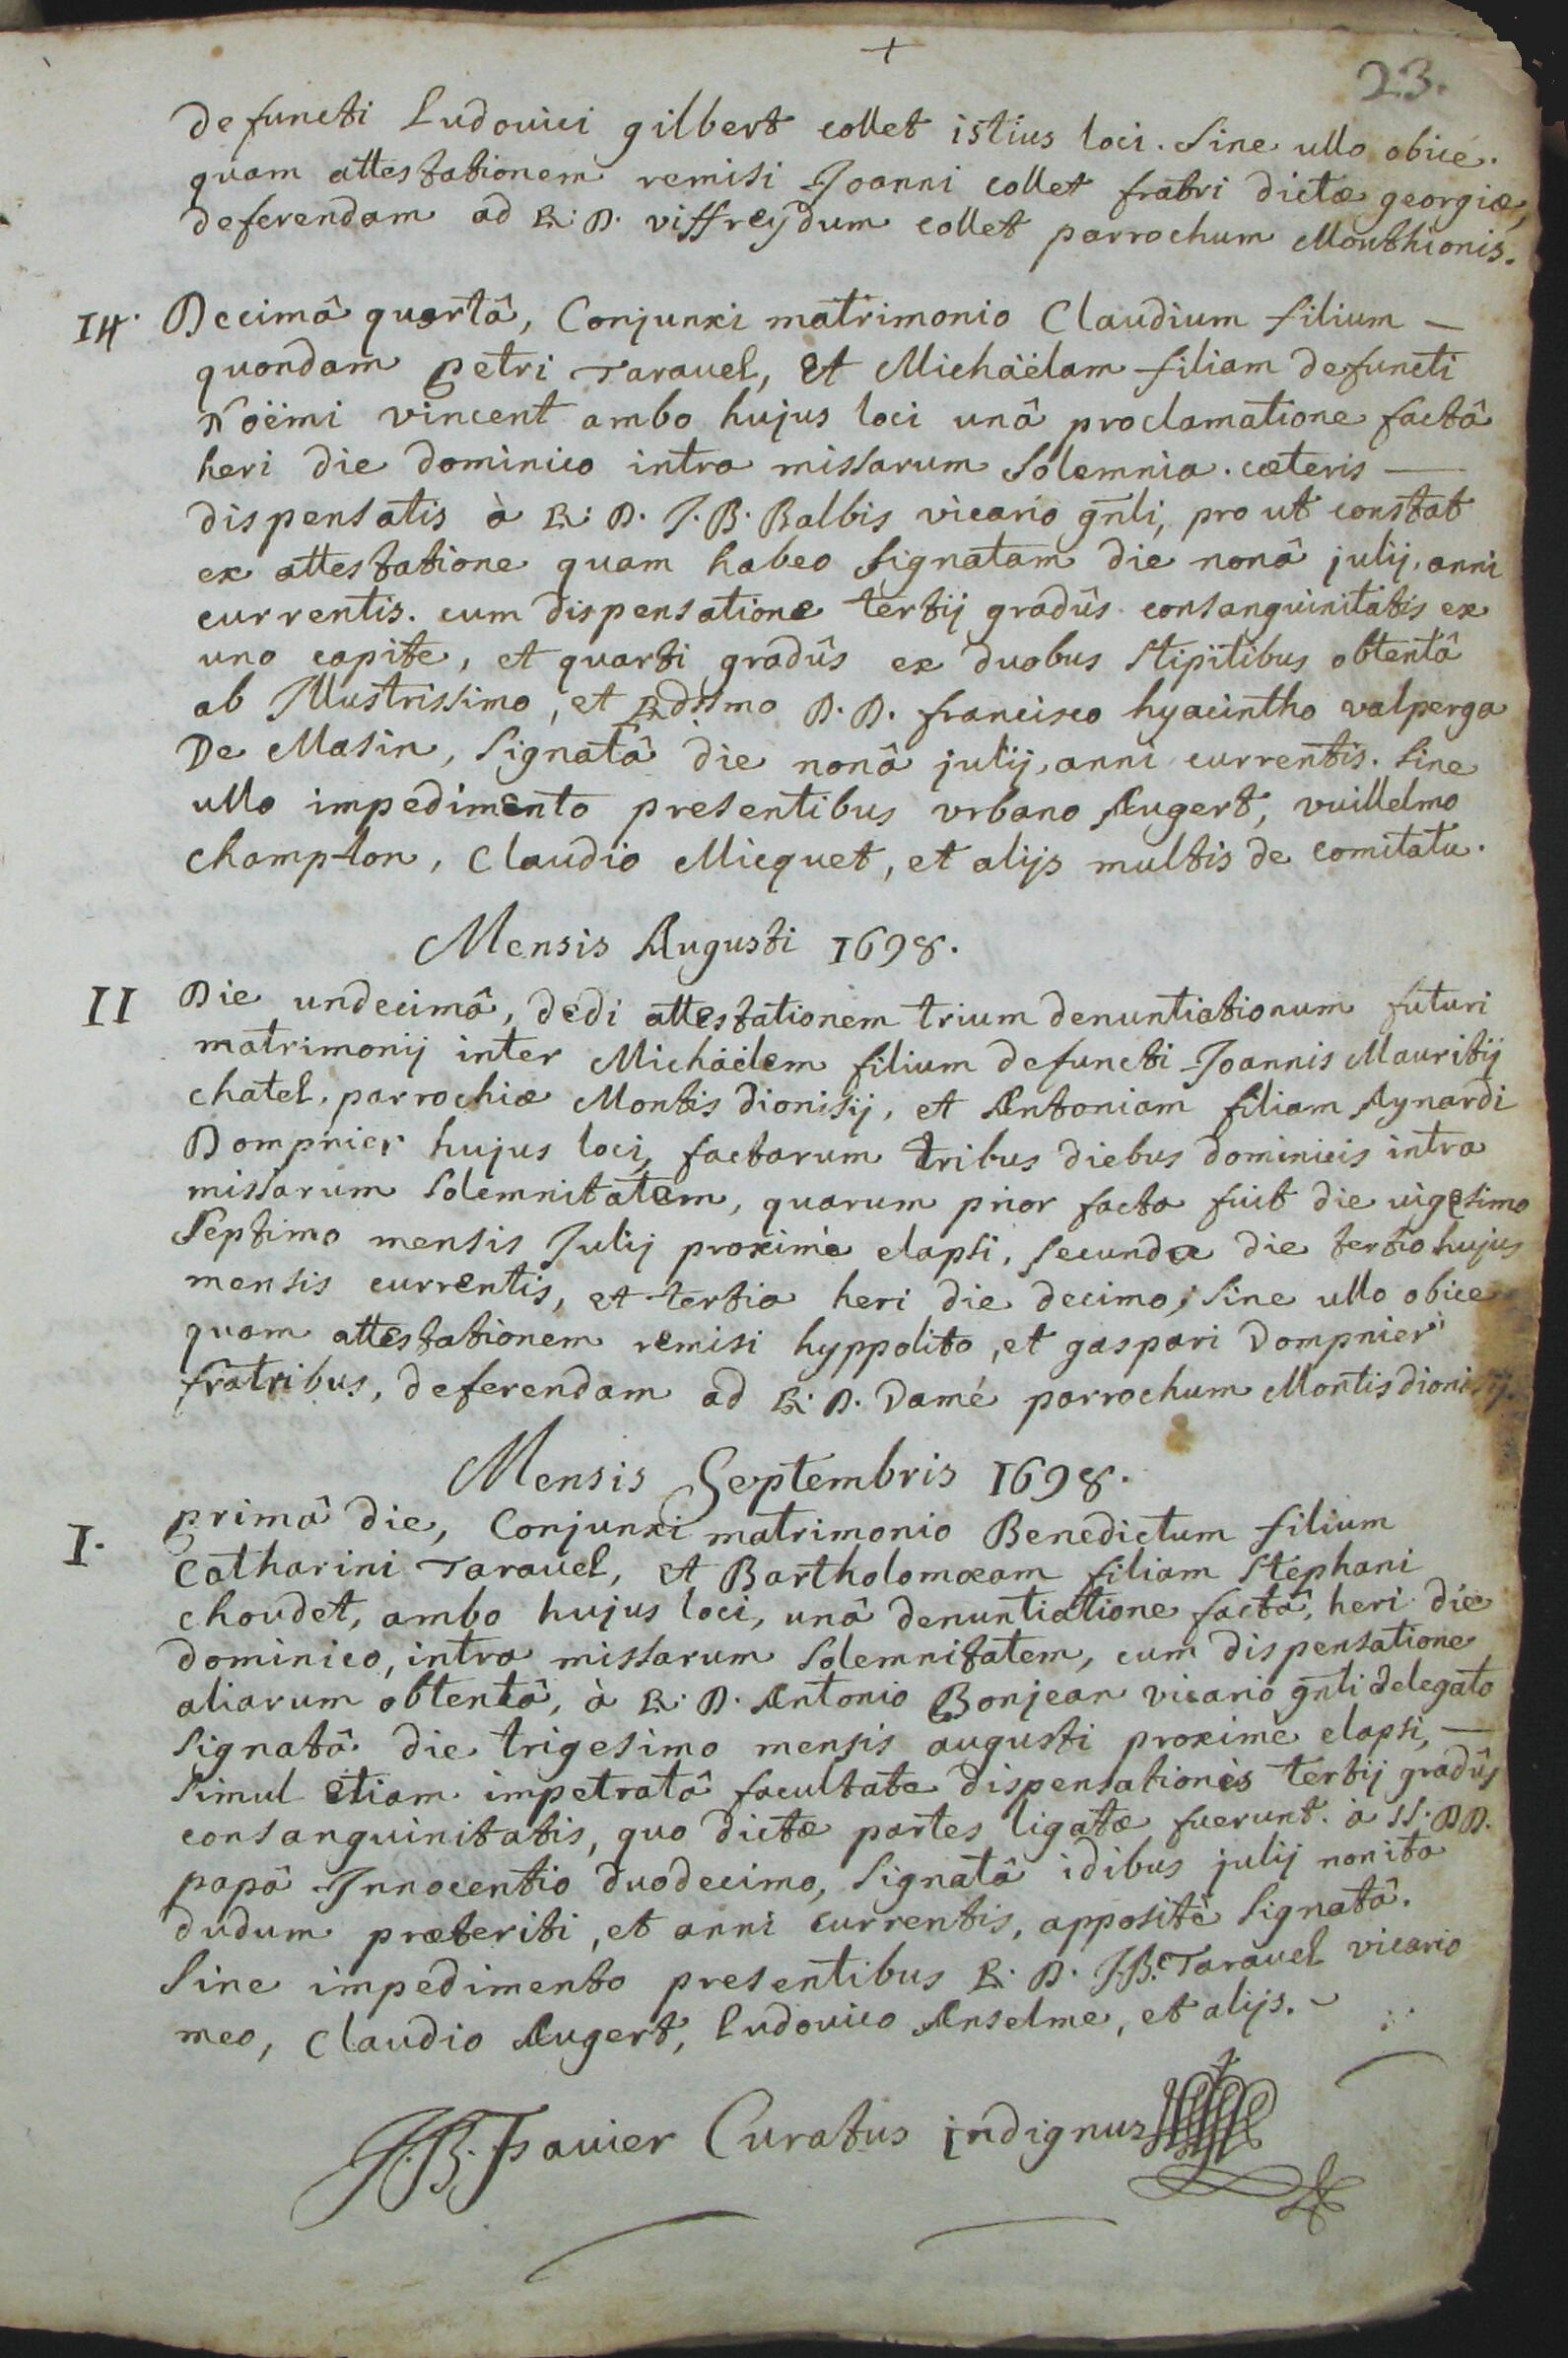 +
23.
defuncti Ludovici gilbert collet istius loci. Sine ullo obice.
quam attestationem remisi Joanni collet fratri dictæ georgiæ,
deferendam ad R: D. viffreÿdum collet parrochum Monthionis.
14. Decimâ quartâ, Conjunxi matrimonio Claudium filium —
quondam petri Taravel, et Michäelam filiam defuncti
Nöemi vincent ambo hujus loci unâ proclamatione factâ
heri die dominico intra missarum Solemnia. cæteris —
dispensatis à R: D. J. B. Balbis vicario gn̄li, pro ut constat
ex attestatione quam habeo Signatam die nonâ julij, anni
currentis. cum dispensatione tertij gradûs consanguinitatis ex
uno capite, et quarti gradûs ex duobus Stipitibus obtentâ
ab Illustrissimo, et Rdissmo D. D. francisco hyacintho valperga
De Masin, Signatâ die nonâ julij, anni currentis. Sine
ullo impedimento presentibus vrbano Augert, vuillelmo
champlon, Claudio Micquet, et alijs multis de comitatu.
Mensis Augusti 1698.
II Die undecimâ, dedi attestationem trium denuntiationum futuri
matrimonij inter Michäelem filium defuncti Joannis Mauritij
chatel, parrochiæ Montis dionisij, et Antoniam filiam Aynardi
Dompnier hujus loci, factarum tribus diebus dominicis intra
missarum Solemnitatem, quarum prior facta fuit die vigesimo
Septimo mensis Julij proximè elapsi, secunda die tertio hujus
mensis currentis, et tertia heri die decimo, Sine ullo obice
quam attestationem remisi hyppolito, et gaspari Dompnier
fratribus, deferendam ad R: D. Damé parrochum Montis dionisij.
Mensis Septembris 1698.
I. primâ die, Conjunxi matrimonio Benedictum filium
Catharini Taravel, et Bartholomœam filiam Stephani
choudet, ambo hujus loci, unâ denuntiatione factâ, heri die
dominico, intra missarum Solemnitatem, cum dispensatione
aliarum obtentâ, à R: D. Antonio Bonjean vicario gn̄li delegato
Signatâ die trigesimo mensis augusti proximè elapsi, —
Simul etiam impetratâ facultate dispensationis tertij gradûs
consanguinitatis, quo dictæ partes ligatæ fuerunt. à SS. DD.
papâ Innocentio duodecimo, Signatâ idibus julij non ita
dudum præteriti, et anni currentis, appositè Signatâ.
Sine impedimento presentibus R. D. J. B. Taravel vicario
meo, Claudio Augert, Ludovico Anselme, et alijs.
J. B. Favier Curatus indignus